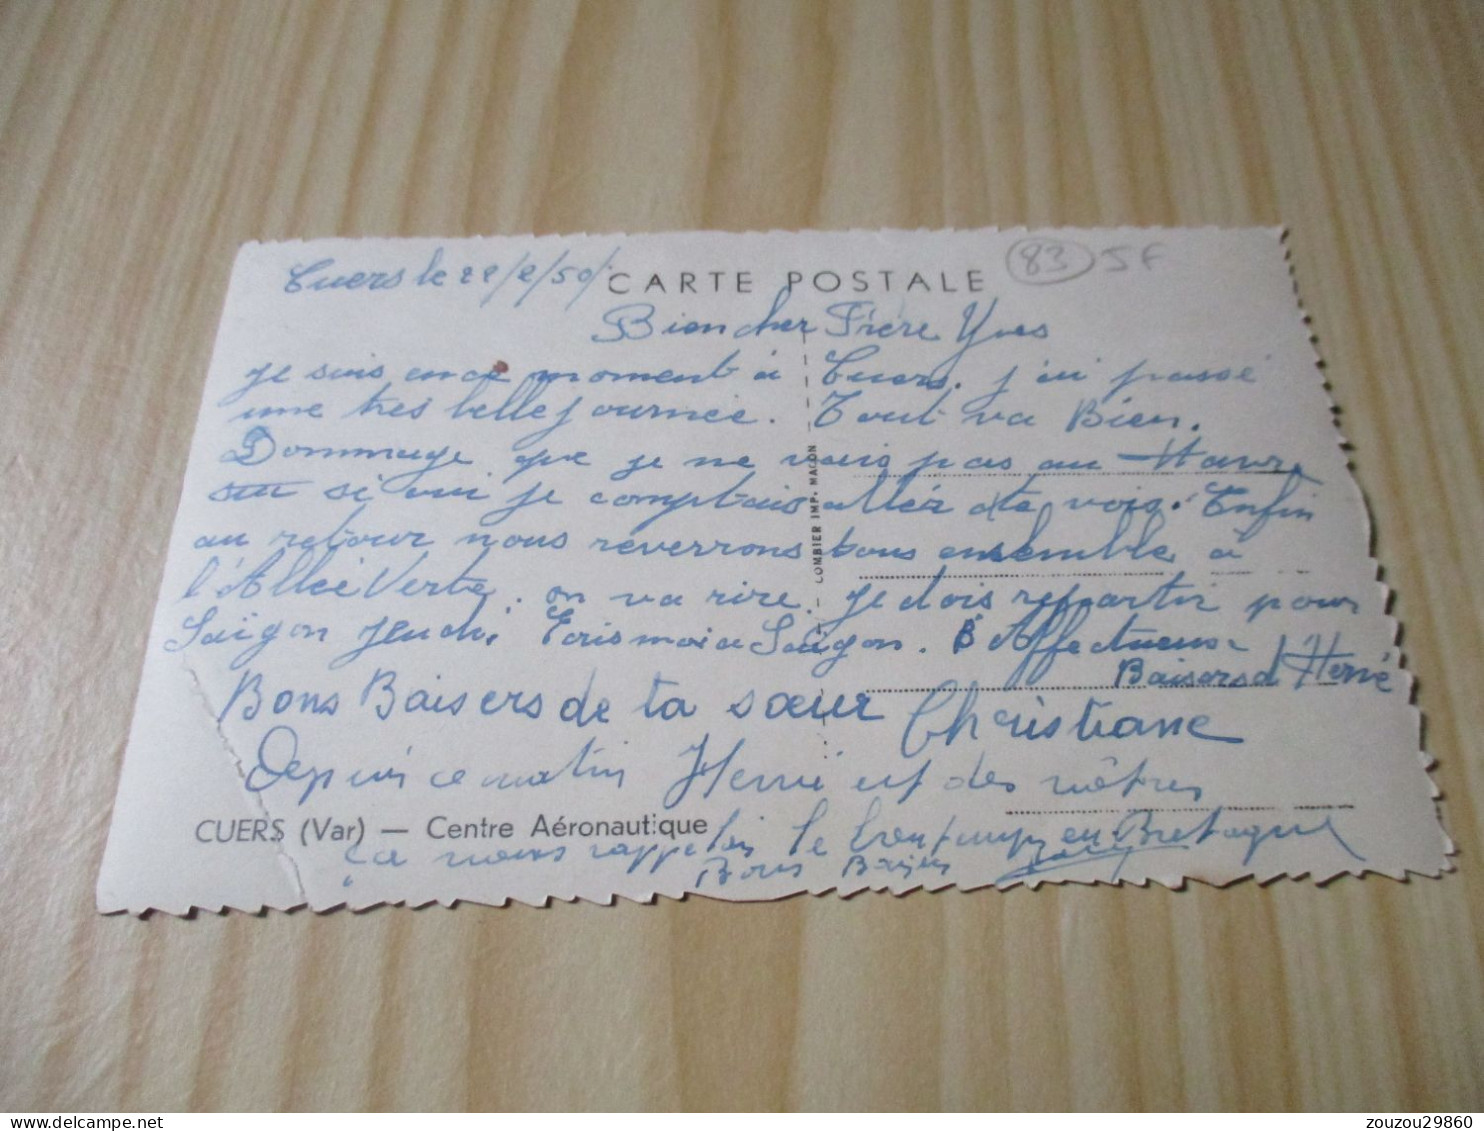 Cuers le 28/2/50
CARTE POSTALE
83 5F
Bien cher Frère Yves
je suis en ce moment à Cuers. j'ai passé
une très belle journée. Tout va Bien.
Dommage que je ne vais pas au Havre
si oui je comptais aller te voir. Enfin
au retour nous reverrons tous ensemble à
l'Allée Verte. on va rire. Je dois repartir pour
Saïgon jeudi. Ecris moi a Saïgon. Affectueux
Baisers d'Hervé
Bons Baisers de ta sœur Christiane
Depuis ce matin Hervé est des nôtres
CUERS (Var) — Centre Aéronautique
ça nous rappelle le bon temps en Bretagne
Bons Baisers
COMBIER IMP. MACON
zouzou29860